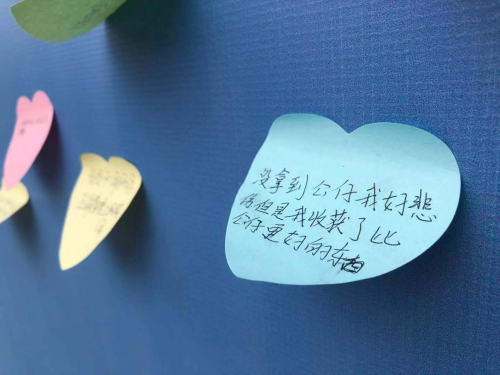 没拿到公仔我好悲
伤但是我收获了比
公仔更好的东西